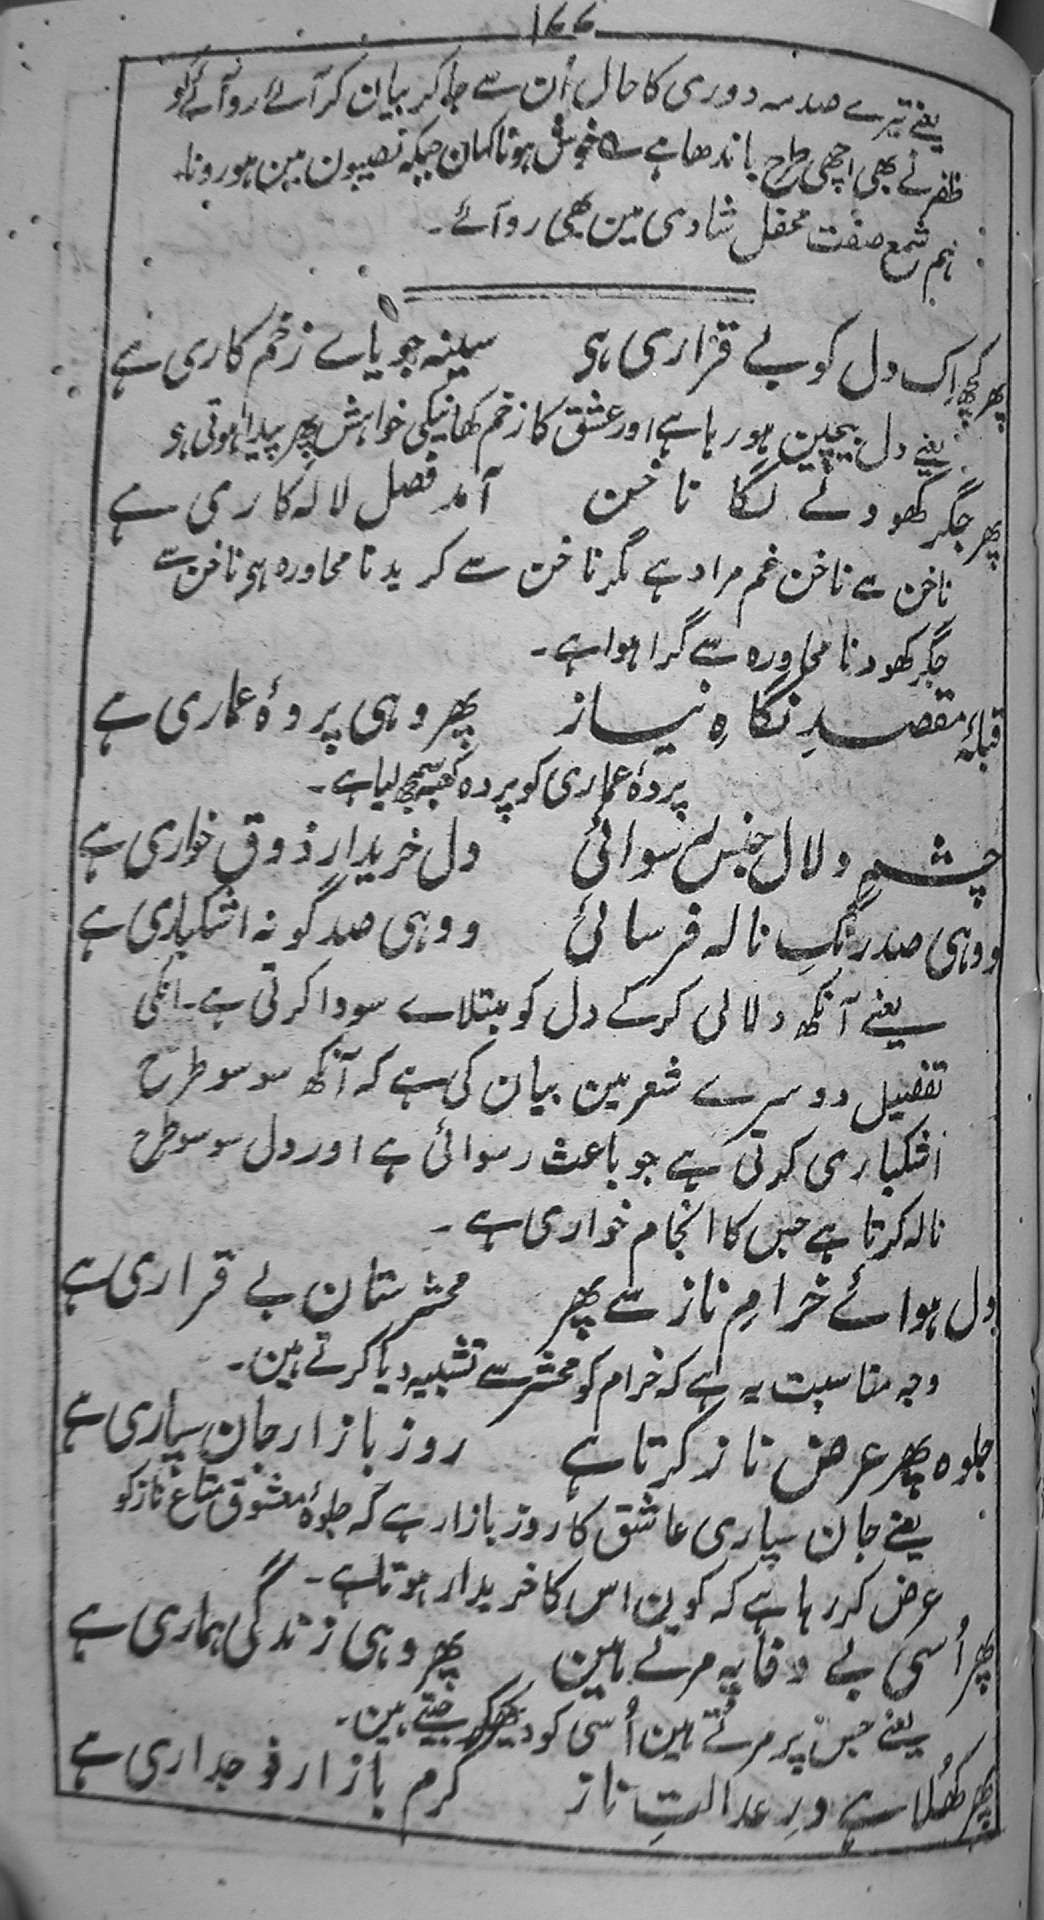 ۱۷۷
یعنے تیرے صدمہ دوری کا حال اُن سے جاکر بیان کر آئے رو آئے کو
ظفر نے بھی اچھی طرح باندھا ہے خوش ہونا کہان جبکہ نصیبون مین ہو رونا۔
ہم شمع صفت محفل شادی مین بھی رو آئے۔
پھر کچھ اِک دل کو بے قراری ہی سینہ جویاے زخم کاری ہے
یعنے دل بیچین ہو رہا ہے اور عشق کا زخم کھانیکی خواہش پھر پیدا ہوتی ہی
پھر جگر کھودنے لگا ناخن آمد فصل لالہ کاری ہے
ناخن سے ناخن غم مراد ہے مگر ناخن سے کریدنا محاورہ ہی ناخن سے
جگر کھودنا محاورہ سے گرا ہوا ہے۔
قبلۂ مقصدِ نگاہِ نیاز پھر وہی پردۂ عماری ہے
پردۂ عماری کو پردہ کعبہ سمجھ لیا ہے۔
چشم دلال جنس رسوائی دل خریدارِ ذوق خواری ہے
ووہی صدرنگ نالہ فرسائی ووہی صد گونہ اشکباری ہے
یعنے آنکھ دلالی کرکے دل کو مبتلاے سودا کرتی ہے۔ انکی
تفصیل دوسرے شعر مین بیان کی ہے کہ آنکھ سو سو طرح
اشکباری کرتی ہے جو باعث رسوائی ہے اور دل سو سو طرح
نالہ کرتا ہے جس کا انجام خواری ہے۔
دل ہوائے خرامِ ناز سے پھر محشرستان بے قراری ہے
وجہ مناسبت یہ ہے کہ خرام کو محشر سے تشبیہ دیا کرتے ہین۔
جلوہ پھر عرض ناز کرتا ہے روز بازار جان سپاری ہے
یعنے جان سپاری عاشق کا روز بازار ہے کہ جلوۂ معشوق متاع ناز کو
عرض کر رہا ہے کہ کون اس کا خریدار ہوتا ہے۔
پھر اُسی بے وفا پہ مرتے ہین پھر وہی زندگی ہماری ہے
یعنے جس پر مرتے ہین اُسی کو دیکھکر جیتے ہین۔
پھر کھُلا ہے درِ عدالتِ ناز گرم بازار فوجداری ہے